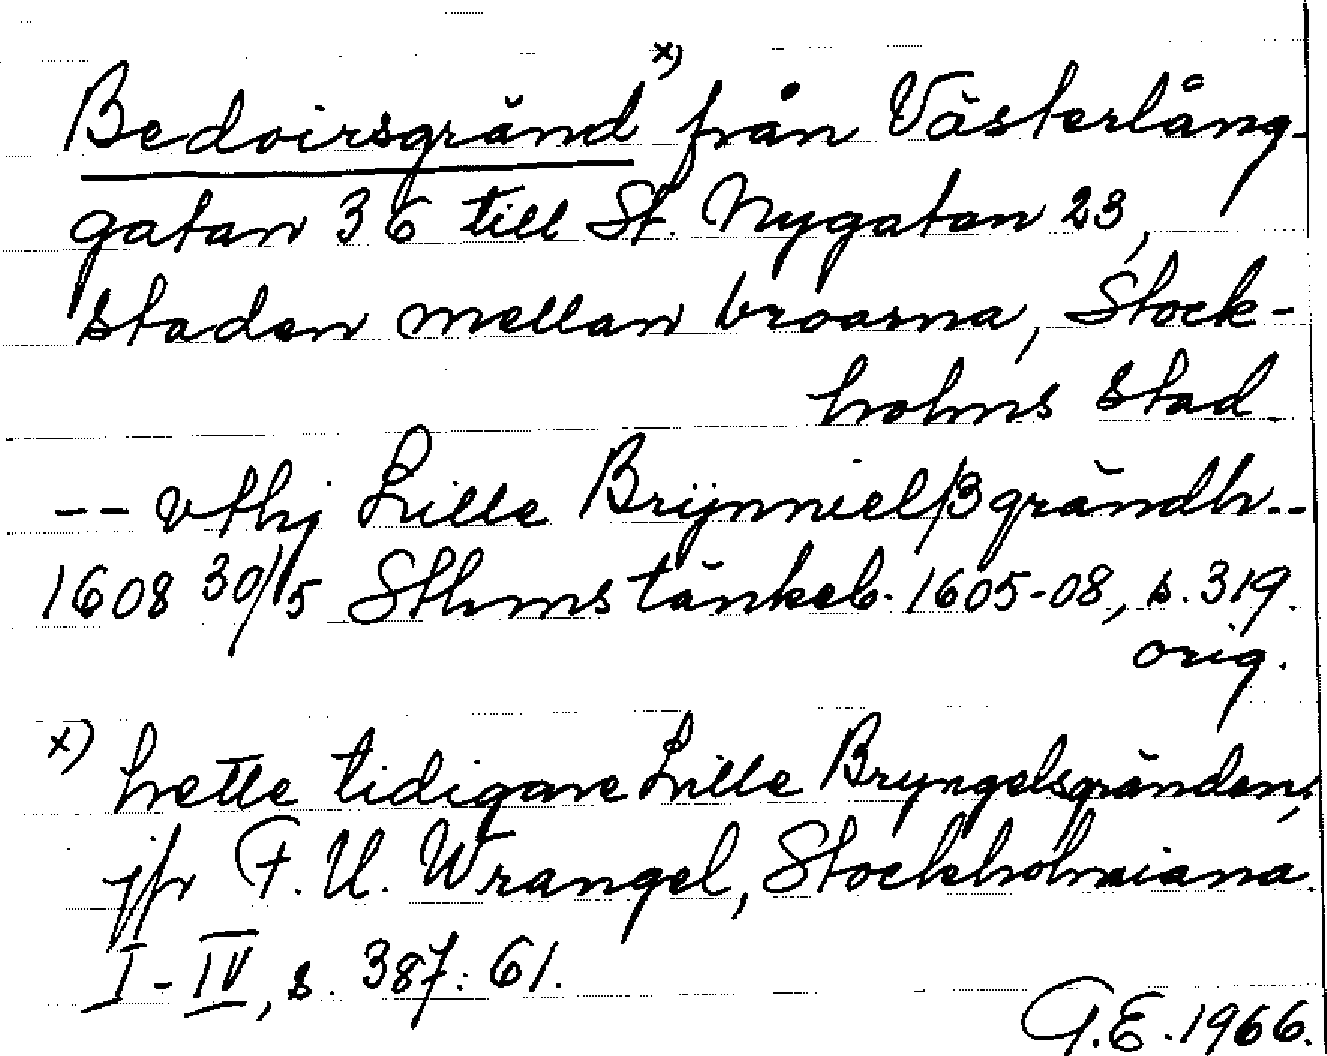 Bedoirsgränd x) från Västerlång-
gatan 36 till St. Nygatan 23,
staden mellan broarna, Stock-
holms stad
-- vthj Lille Brÿnnielßgrändh--
1608 30/5 Sthms tänkeb. 1605-08, s. 319.
orig.
x) hette tidigare Lille Bryngelsgränden,
jfr F. U. Wrangel, Stockholmiana
I-IV, s. 387: 61.
G.E. 1966.